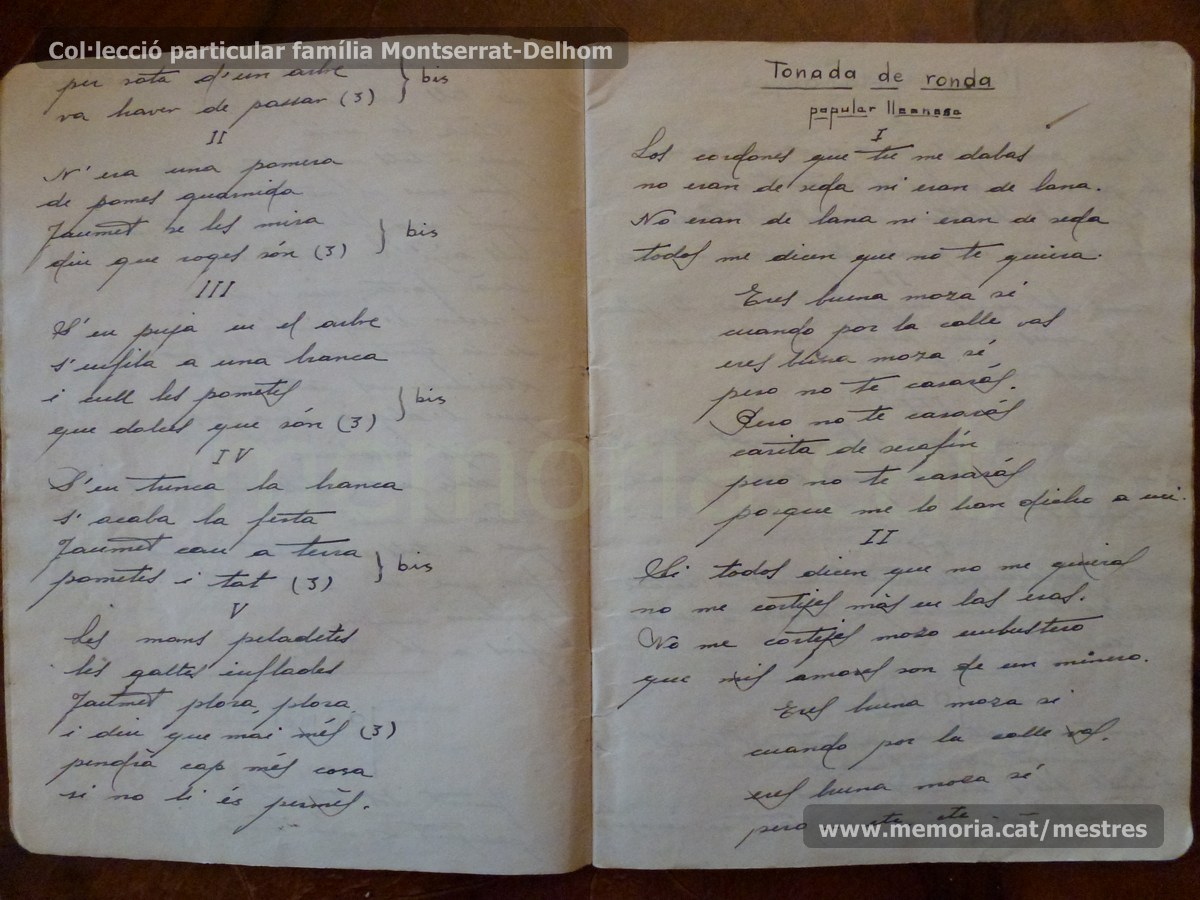 Col·lecció particular família Montserrat-Delhom
per sota d'un arbre
va haver de passar (3) } bis
II
N'era una pomera
de pomes guarnida
Jaumet se les mira
diu que roges són (3) } bis
III
S'en puja en el arbre
s'enfila a una branca
i cull les pometes
que dolces que són (3) } bis
IV
S'en trenca la branca
s'acaba la festa
Jaumet cau a terra
pometes i tot (3) } bis
V
Les mans peladetes
les galtes inflades
Jaumet plora, plora
i diu que mai més (3)
pendrà cap més cosa
si no li és permès.
Tonada de ronda
popular lleonesa
I
Los cordones que tu me dabas
no eran de seda ni eran de lana.
No eran de lana ni eran de seda
todos me dicen que no te quiera.
Eres buena moza sí
cuando por la calle vas
eres buena moza sí
pero no te casarás.
Pero no te casarás
carita de serafín
pero no te casarás
porque me lo han dicho a mi.
II
Si todos dicen que no me quieras
no me cortejes más en las eras.
No me cortejes mozo embustero
que mis amores son de un minero.
Eres buena moza si
cuando por la calle vas.
eres buena moza sí
pero etc. etc.
www.memoria.cat/mestres